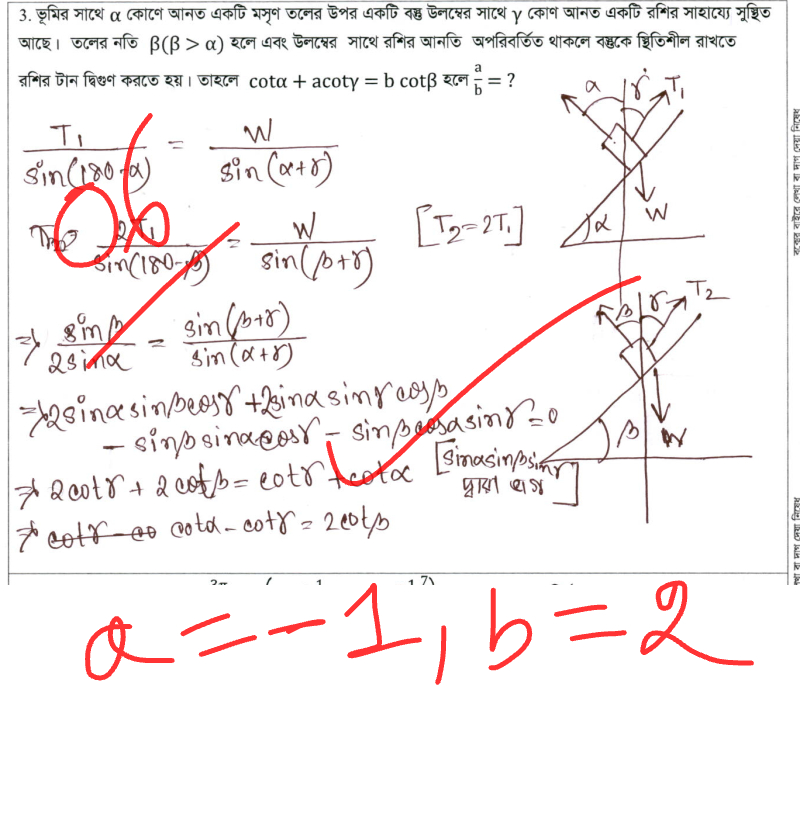 3. ভূমির সাথে α কোণে আনত একটি মসৃণ তলের উপর একটি বস্তু উলম্বের সাথে γ কোণ আনত একটি রশির সাহায্যে সুস্থিত
আছে। তলের নতি β(β > α) হলে এবং উলম্বের সাথে রশির আনতি অপরিবর্তিত থাকলে বস্তুকে স্থিতিশীল রাখতে
রশির টান দ্বিগুণ করতে হয়। তাহলে cotα + acotγ = b cotβ হলে a/b = ?
T₁/sin(180-α) = W/sin(α+γ)
2T₁/sin(180-β) = W/sin(β+γ) [T₂=2T₁]
⇒ sinβ/2sinα = sin(β+γ)/sin(α+γ)
⇒ 2sinαsinβcosγ + 2sinαsinγcosβ
- sinβsinαcosγ - sinβcosαsinγ = 0
⇒ 2cotγ + 2cotβ = cotγ + cotα [sinαsinβsinγ দ্বারা ভাগ]
⇒ cotα - cotγ = 2cotβ
α γ T₁
W
α
β γ T₂
W
β
06
a = -1, b = 2